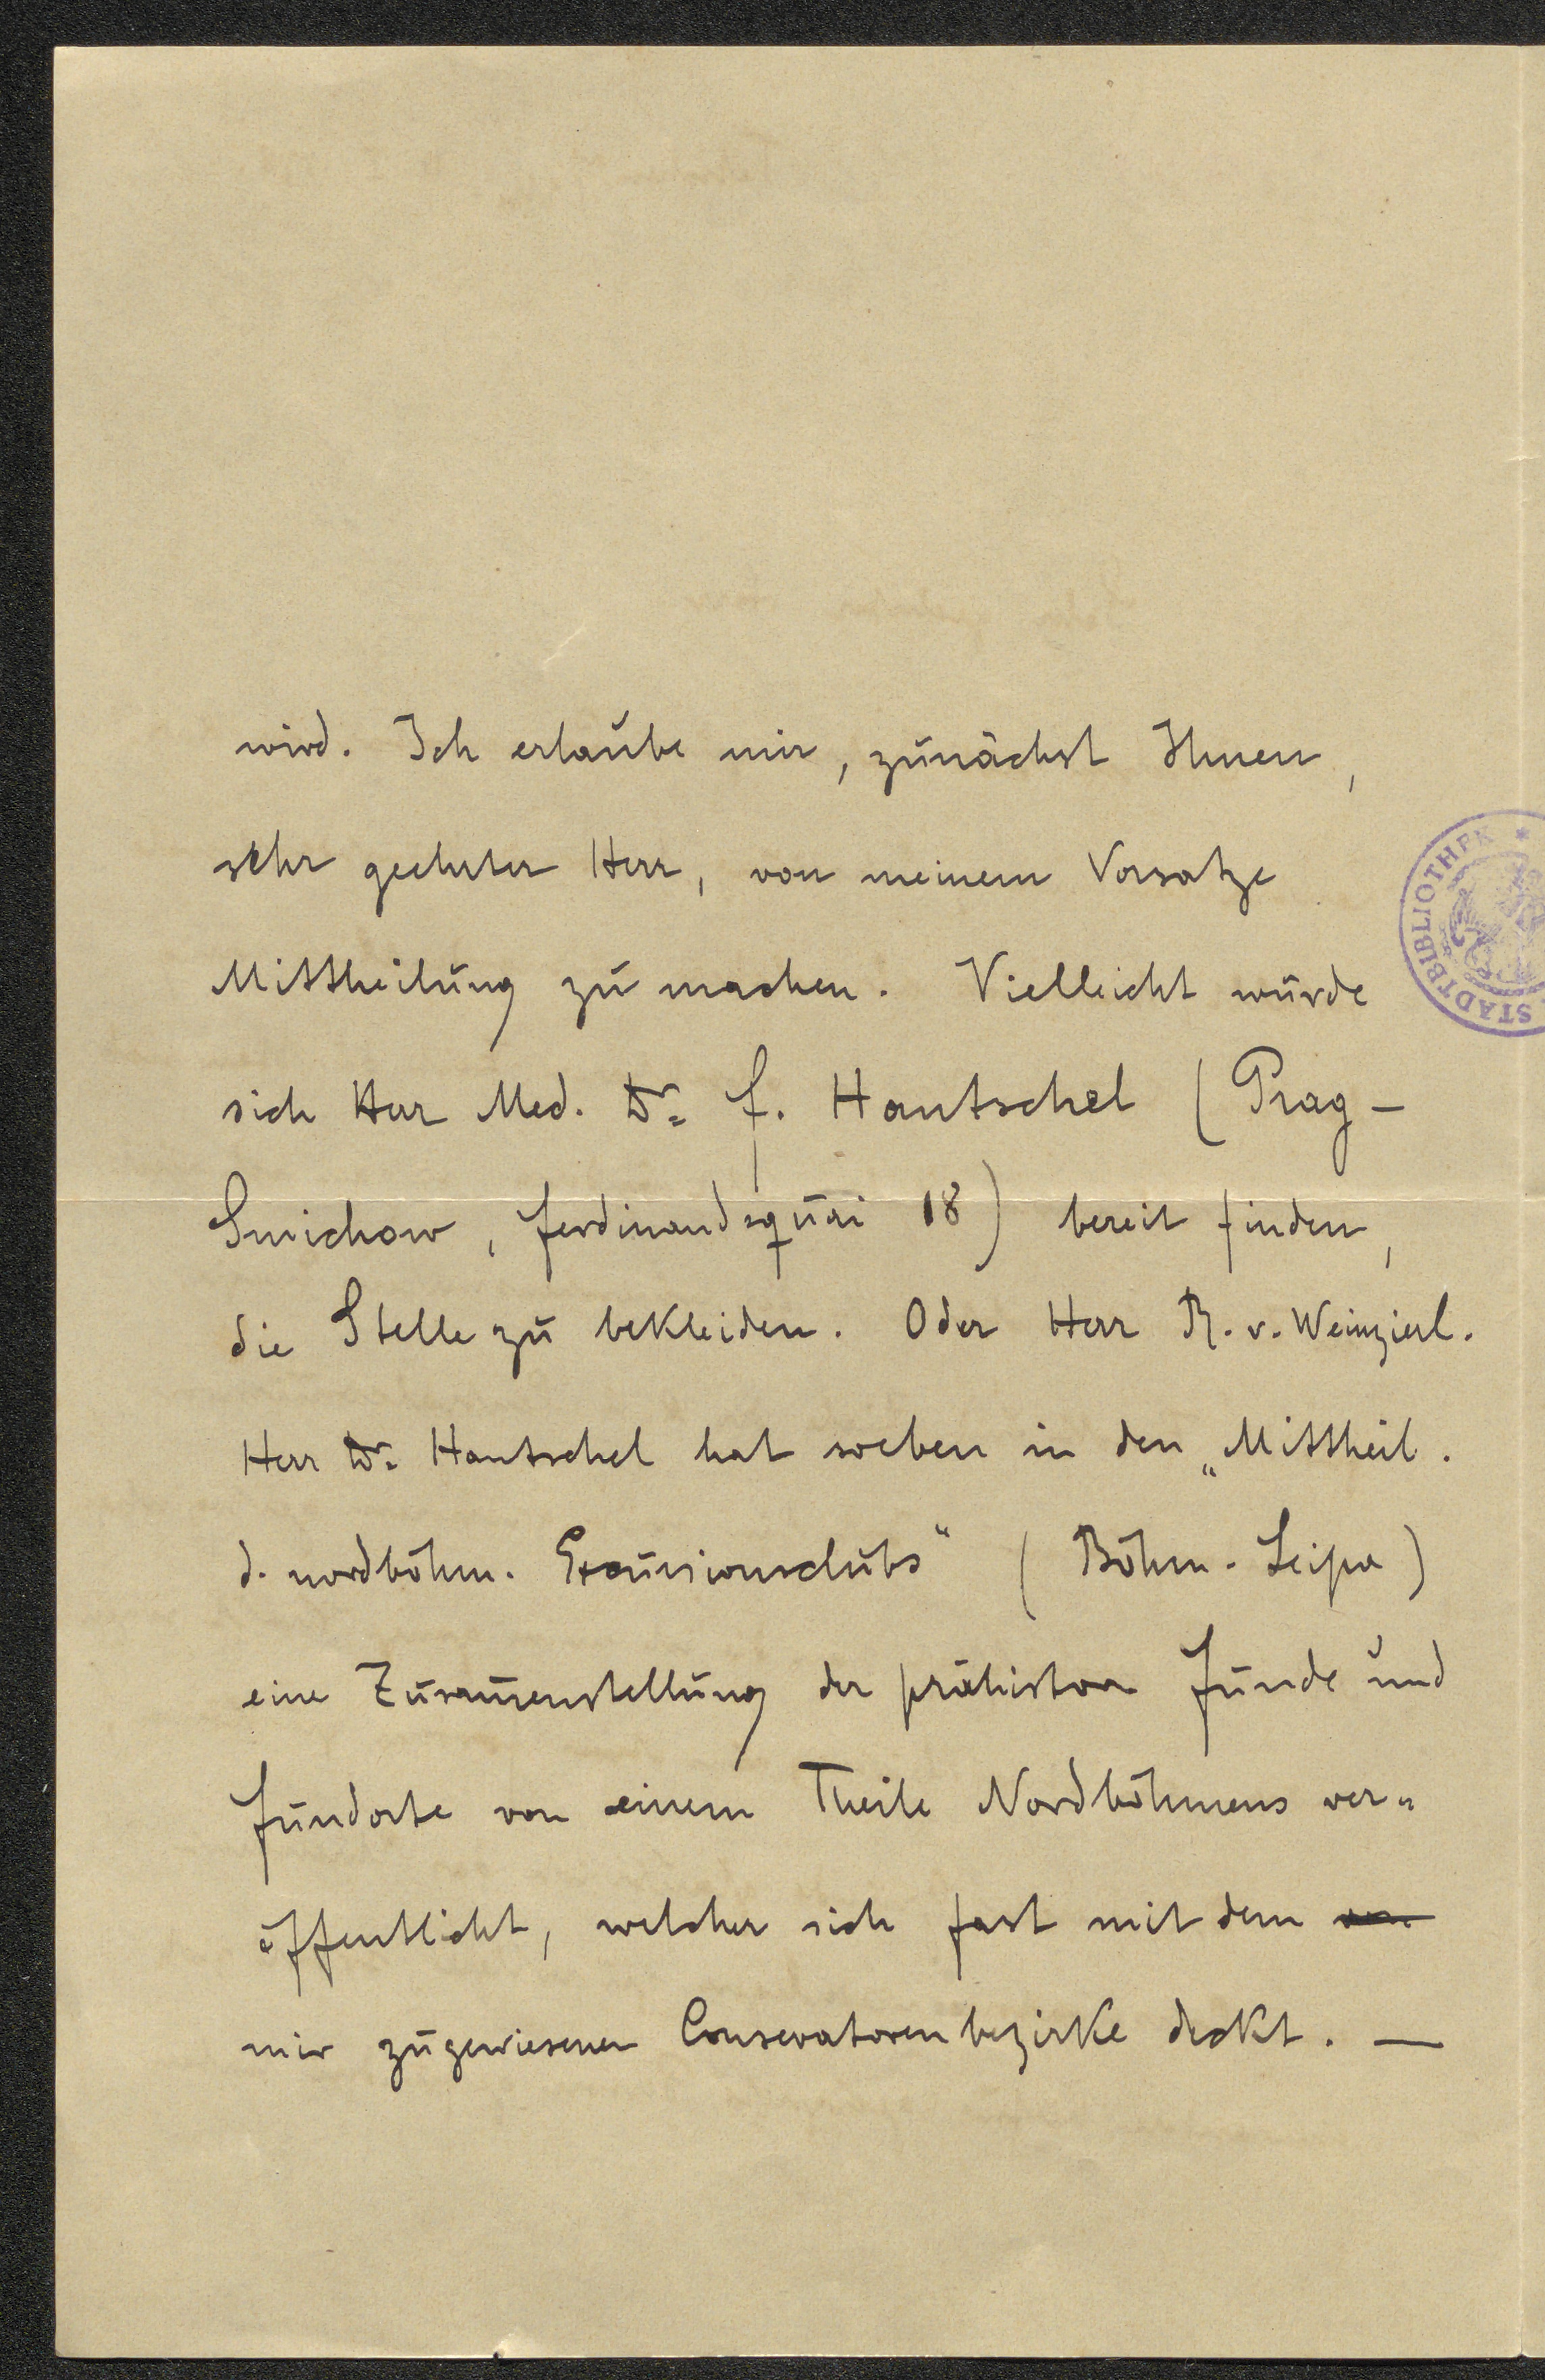 wird. Ich erlaube mir, zunächst Ihnen,
sehr geehrter Herr, von meinem Vorsatze
Mittheilung zu machen. Vielleicht würde
sich Herr Med. Dr. F. Hantschel (Prag-
Smichow, Ferdinandsquai 18) bereit finden,
die Stelle zu bekleiden. Oder Herr R. v. Weinzierl.
Herr Dr. Hantschel hat soeben in den „Mittheil.
d. nordböhm. Excursionsclubs“ (Böhm.-Leipa)
eine Zusam̄enstellung der prähistor Funde und
Fundorte von einem Theile Nordböhmens ver-
öffentlicht, welcher sich fast mit dem
mir zugewiesenen Conservatorenbezirke deckt. —
STADTBIBLIOTHEK *